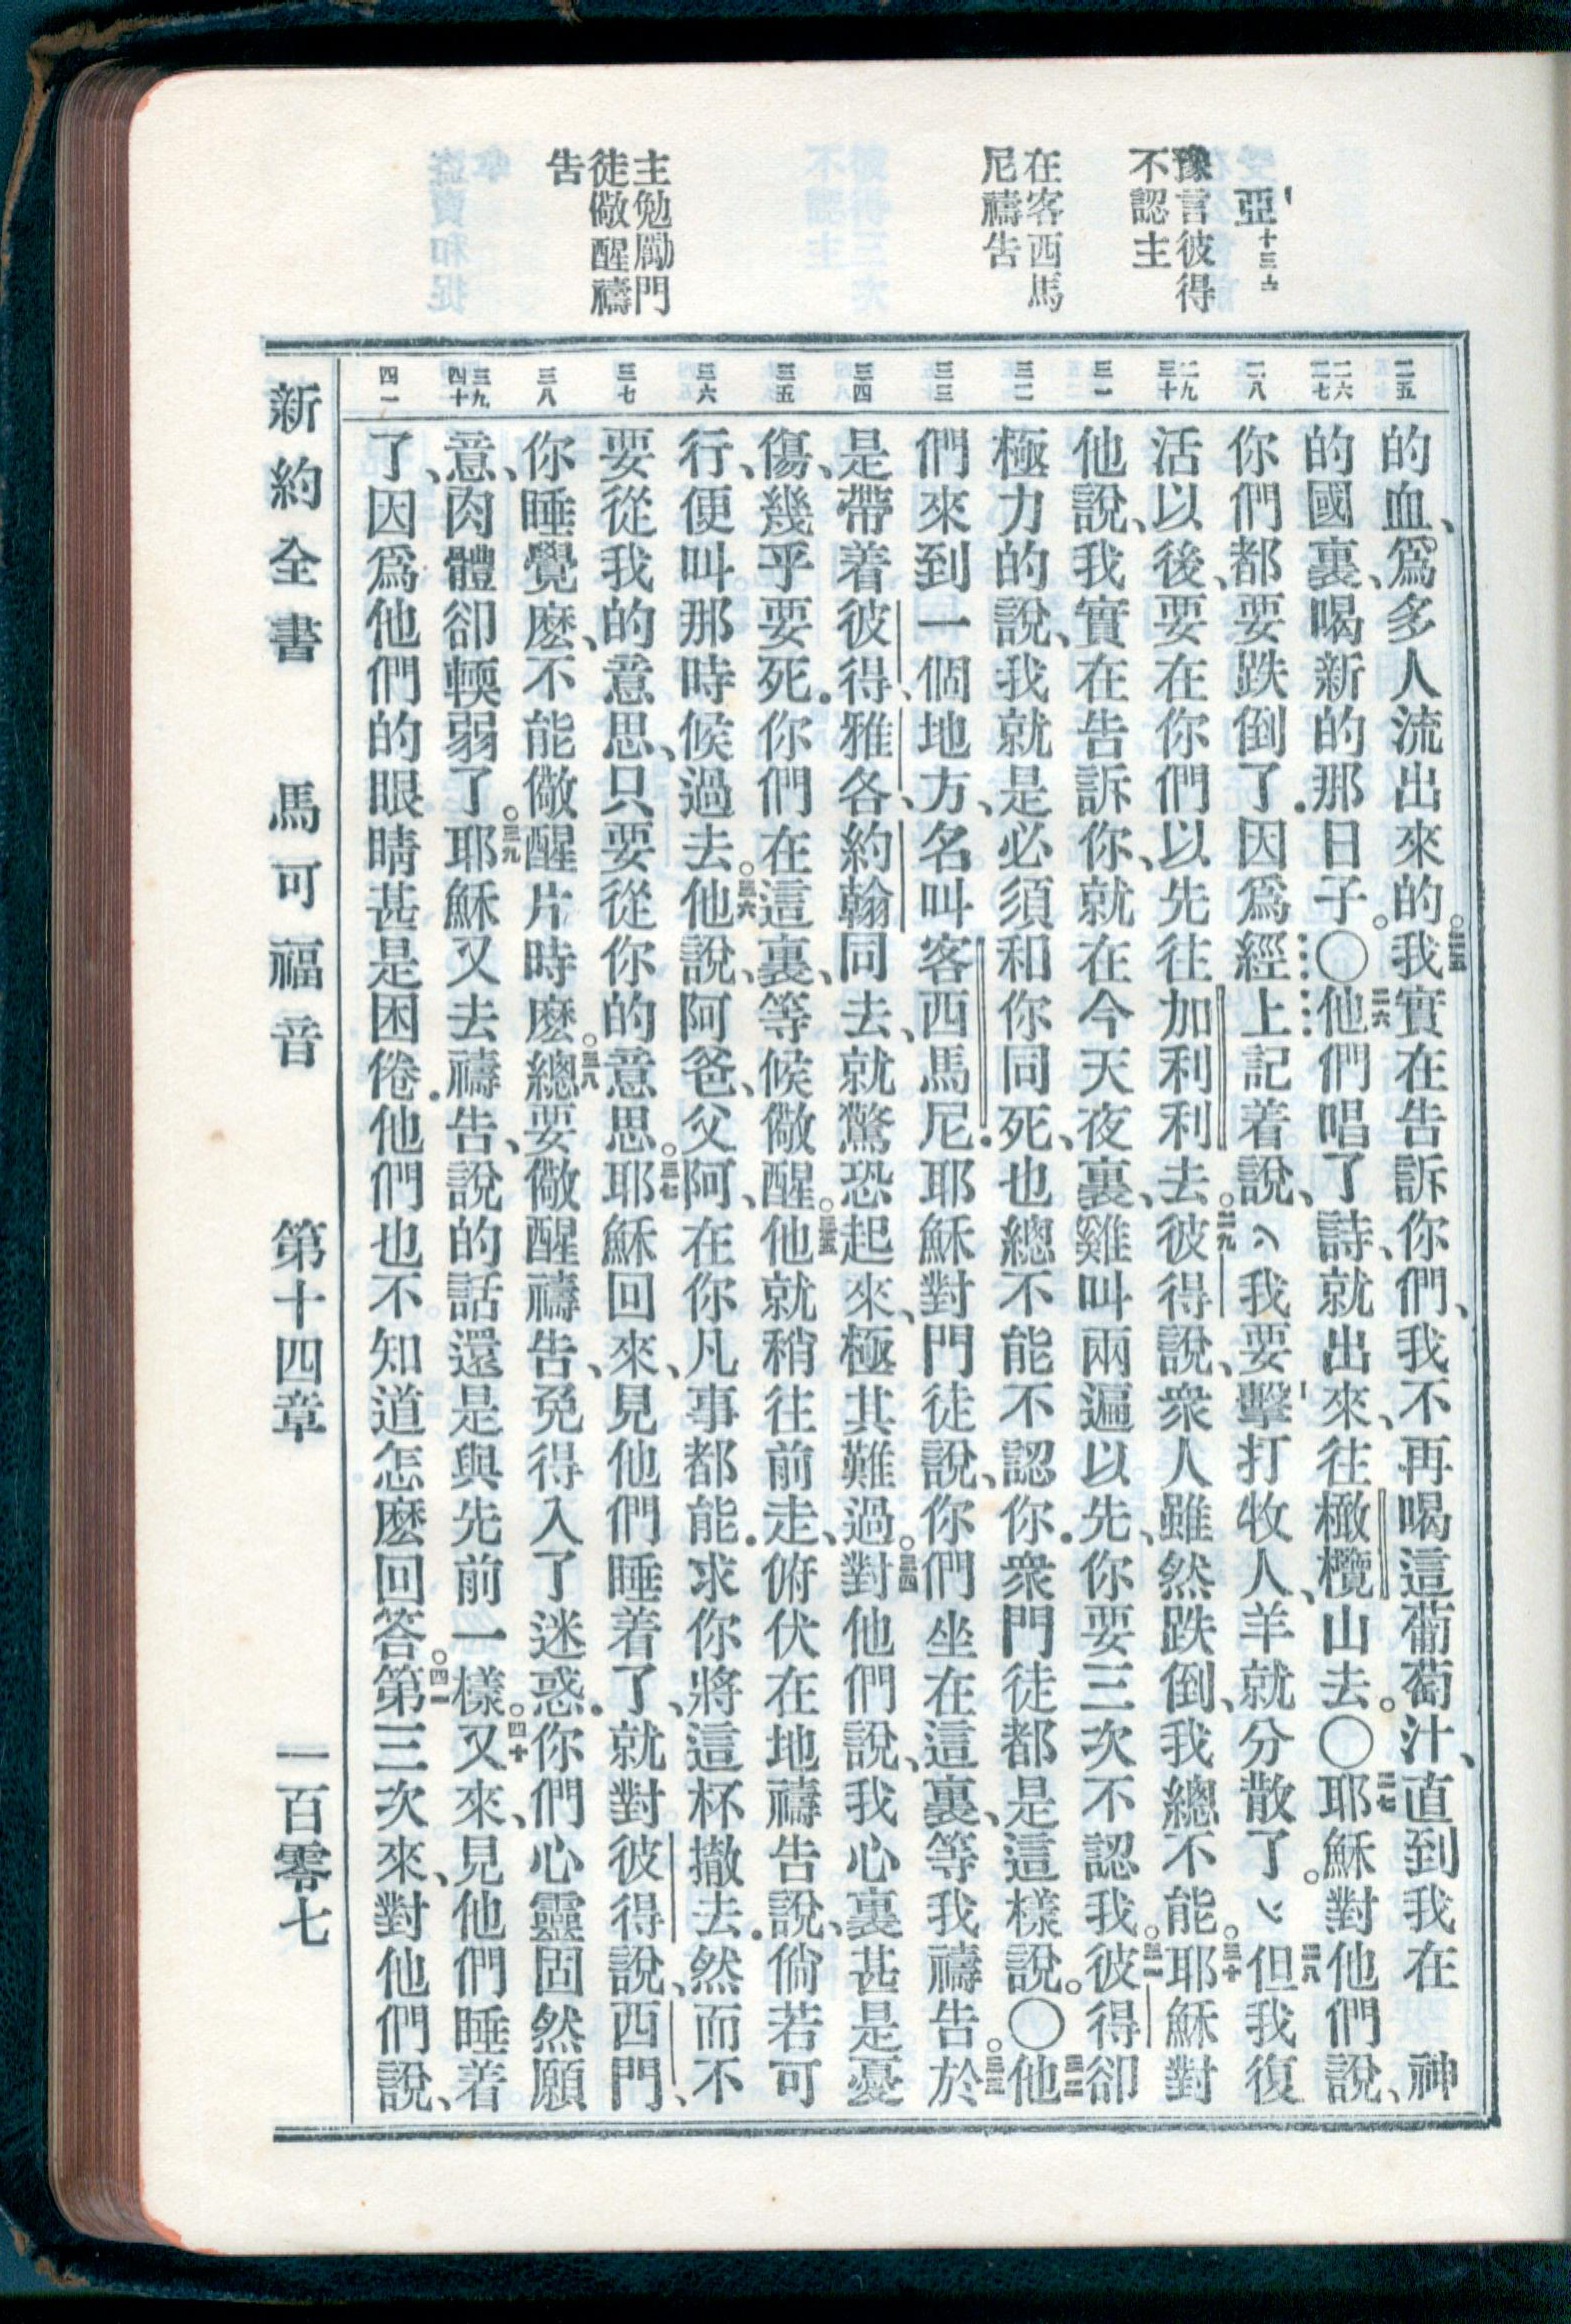 亞十三七
豫言彼得
不認主
在客西馬
尼禱告
主勉勵門
徒儆醒禱
告
二五
二六
二七
二八
二九
三十
三一
三二
三三
三四
三五
三六
三七
三八
三九
四十
四一
的血、爲多人流出來的。二五我實在告訴你們、我不再喝這葡萄汁、直到我在　神
的國裏、喝新的那日子。〇二六他們唱了詩、就出來、往橄欖山去。〇二七耶穌對他們說、
你們都要跌倒了．因爲經上記着說、我要擊打牧人、羊就分散了。二八但我復
活以後、要在你們以先往加利利去。二九彼得說、衆人雖然跌倒、我總不能。三十耶穌對
他說、我實在告訴你、就在今天夜裏、雞叫兩遍以先、你要三次不認我。三一彼得卻
極力的說、我就是必須和你同死、也總不能不認你．衆門徒都是這樣說。〇三二他
們來到一個地方、名叫客西馬尼．耶穌對門徒說、你們坐在這裏、等我禱告。三三於
是帶着彼得、雅各、約翰同去、就驚恐起來、極其難過。三四對他們說、我心裏甚是憂
傷、幾乎要死．你們在這裏、等候儆醒。三五他就稍往前走、俯伏在地禱告說、倘若可
行、便叫那時候過去。三六他說、阿爸、父阿、在你凡事都能．求你將這杯撤去．然而不
要從我的意思、只要從你的意思。三七耶穌回來、見他們睡着了、就對彼得說、西門、
你睡覺麼、不能儆醒片時麼。三八總要儆醒禱告、免得入了迷惑．你們心靈固然願
意、肉體卻輭弱了。三九耶穌又去禱告、說的話還是與先前一樣。四十又來、見他們睡着
了、因爲他們的眼睛甚是困倦．他們也不知道怎麼回答。四一第三次來、對他們說、
新約全書　馬可福音　第十四章　一百零七